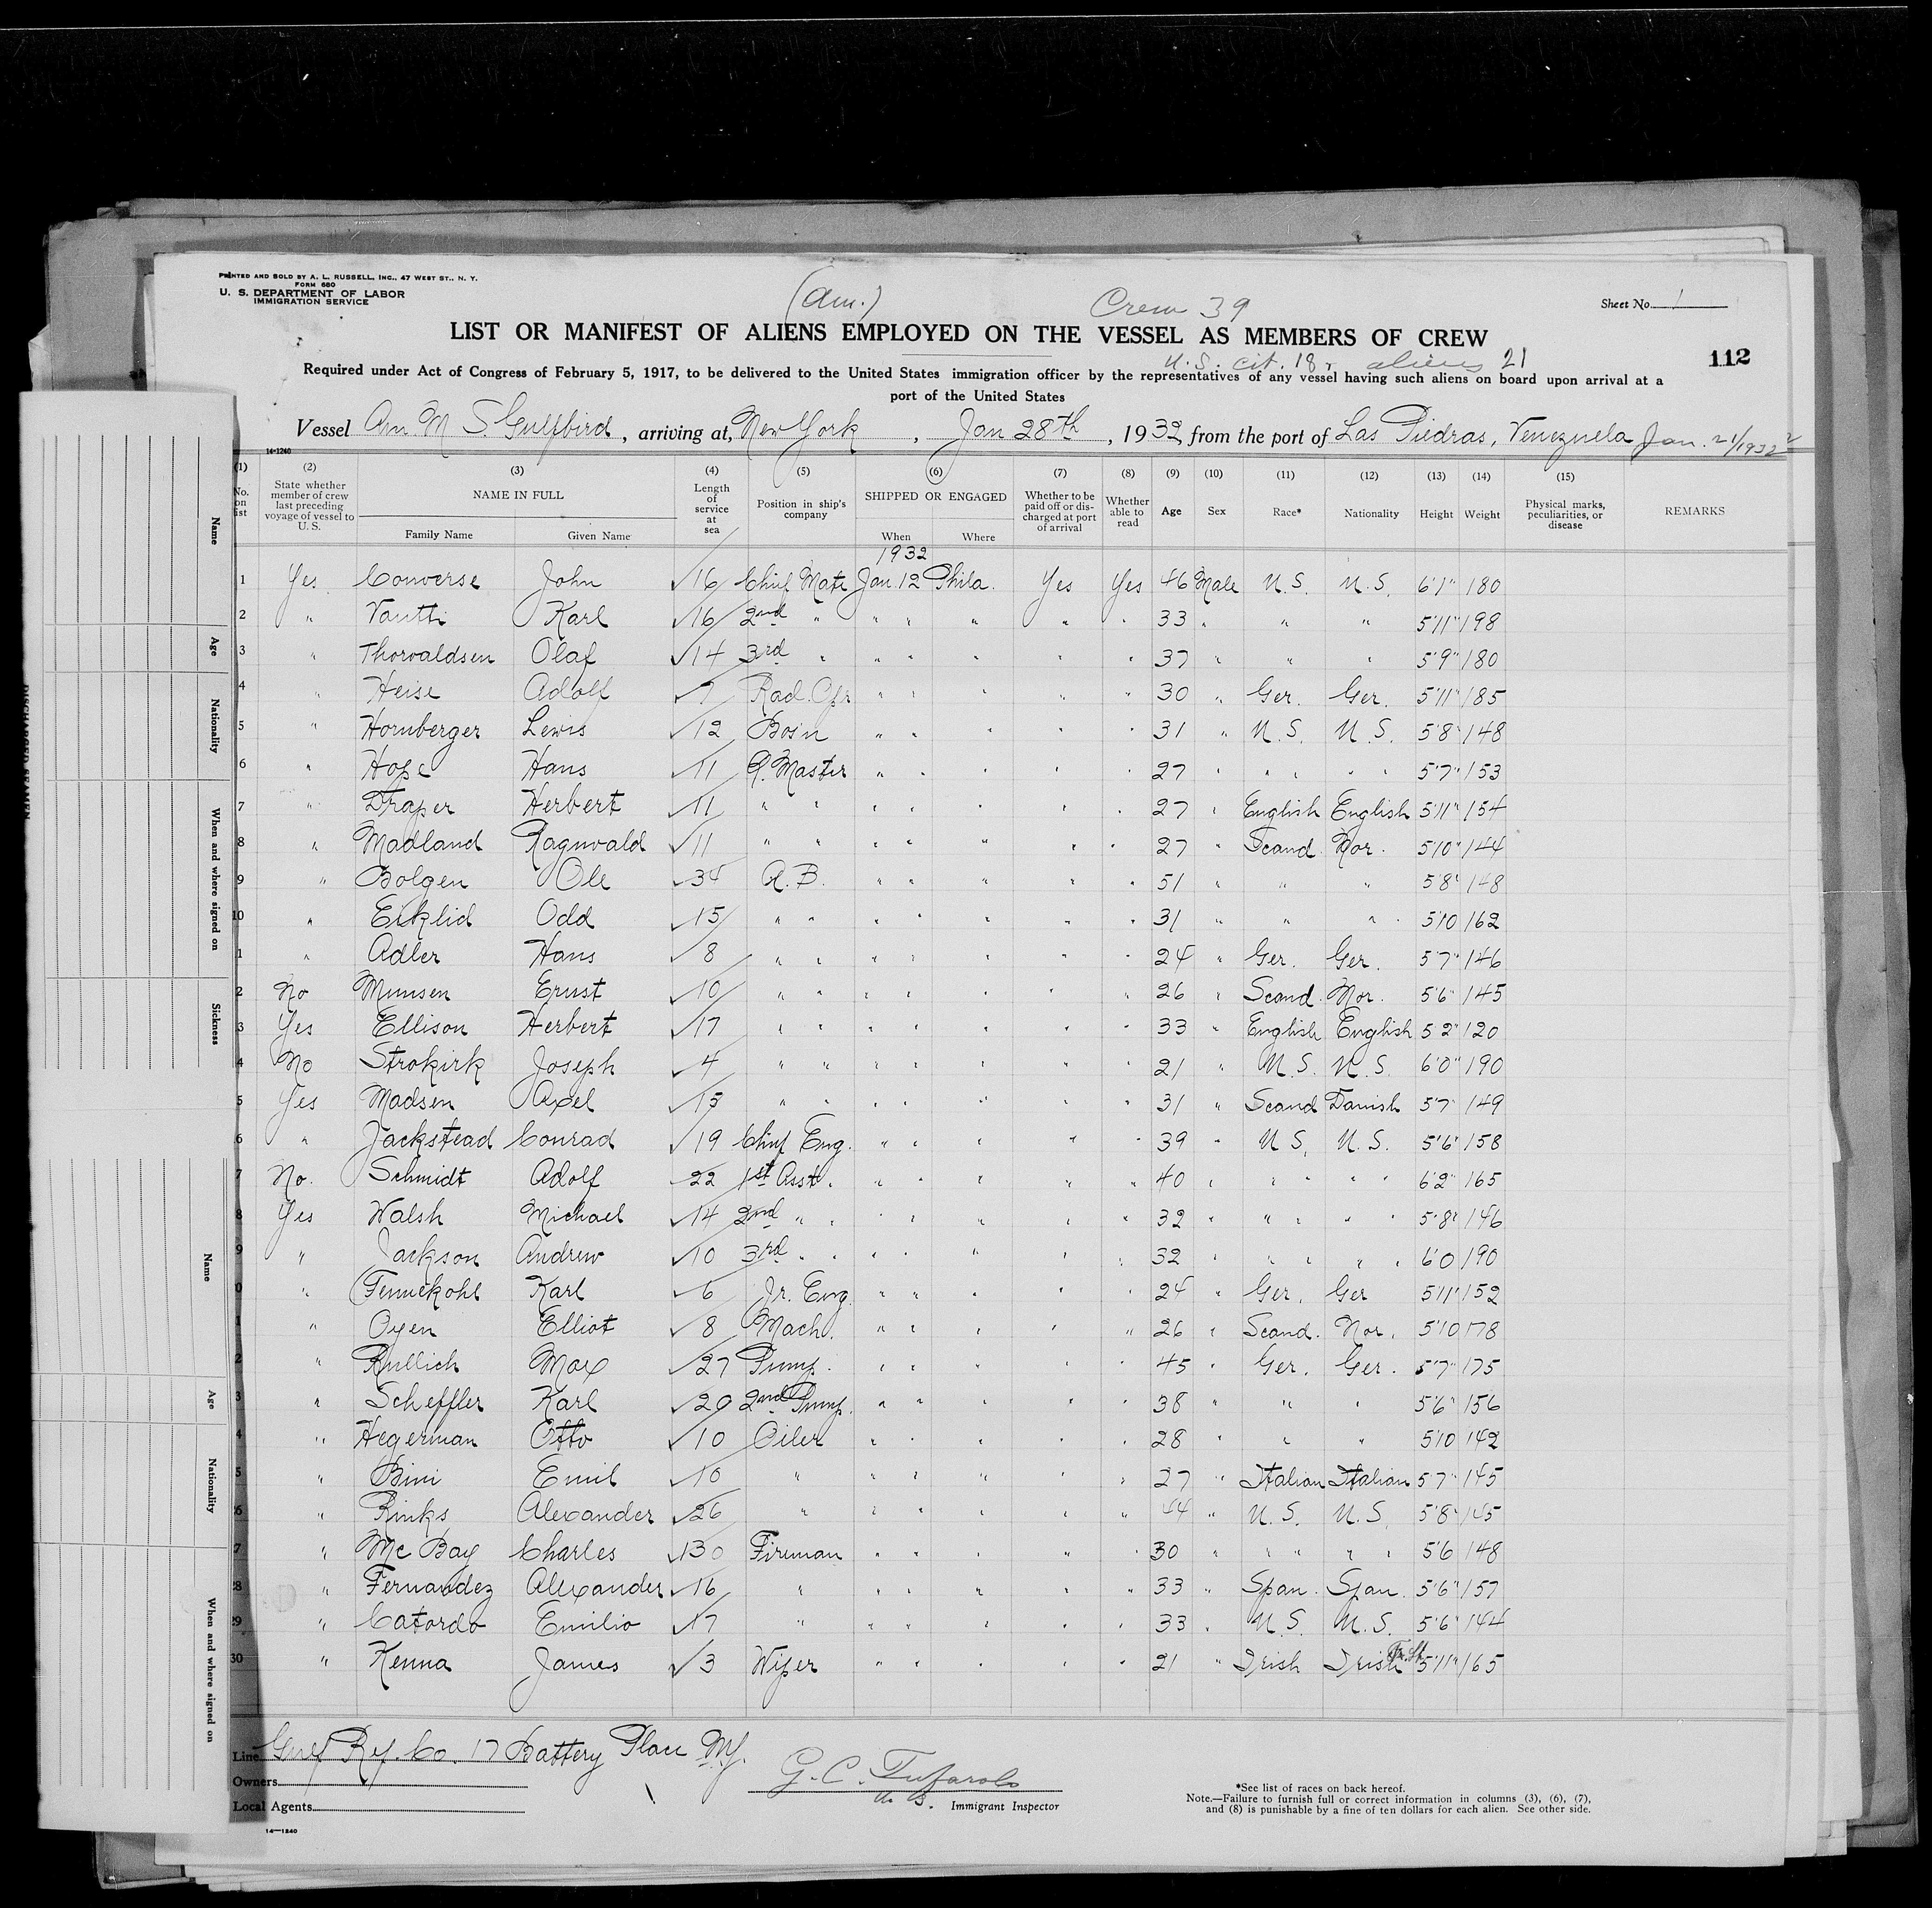 PRINTED AND SOLD BY A. L. RUSSELL, INC., 47 WEST ST., N. Y.
FORM 680
U. S. DEPARTMENT OF LABOR
IMMIGRATION SERVICE
(Am.)
Crew 39
Sheet No. 1
LIST OR MANIFEST OF ALIENS EMPLOYED ON THE VESSEL AS MEMBERS OF CREW
U.S. cit. 18, aliens 21
112
Required under Act of Congress of February 5, 1917, to be delivered to the United States immigration officer by the representatives of any vessel having such aliens on board upon arrival at a
port of the United States
Vessel Am. M. S. Gulfbird, arriving at, New York, Jan 28th, 1932, from the port of Las Piedras, Venezuela Jan. 21/1932
14-1240
(1) (2) (3) (4) (5) (6) (7) (8) (9) (10) (11) (12) (13) (14) (15)
No. on list
State whether member of crew last preceding voyage of vessel to U. S.
NAME IN FULL
Family Name Given Name
Length of service at sea
Position in ship's company
SHIPPED OR ENGAGED
When Where
Whether to be paid off or discharged at port of arrival
Whether able to read
Age Sex Race* Nationality Height Weight
Physical marks, peculiarities, or disease
REMARKS
1932
1 Yes Converse John 16 Chief Mate Jan 12 Phila. Yes Yes 46 Male U.S. U.S. 6'1" 180
2 " Karl 16 2nd " " " " " " 33 " " " 5'11" 198
3 " Thorvaldsen Olaf 14 3rd " " " " " " 37 " " " 5'9" 180
4 " Heise Adolf 7 Rad. Ofr " " " " " 30 " Ger. Ger. 5'11" 185
5 " Hornberger Lewis 12 Bos'n " " " " " 31 " U.S. U.S. 5'8" 148
6 " Hope Hans 11 Q. Master " " " " " 27 " " " " " 5'7" 153
7 " Draper Herbert 11 " " " " " " " 27 " English English 5'11" 154
8 " Madland Ragnvald 11 " " " " " " " 27 " Scand. Nor. 5'10" 144
9 " Bolgen Ole 34 A.B. " " " " " 51 " " " 5'8" 148
10 " Eiklid Odd 15 " " " " " " " 31 " " " 5'10 162
1 " Adler Hans 8 " " " " " " " 24 " Ger. Ger. 5'7" 146
2 No Munsen Ernst 10 " " " " " " " 26 " Scand. Nor. 5'6" 145
3 Yes Ellison Herbert 17 " " " " " " " 33 " English English 5'2" 120
4 No Strokirk Joseph 4 " " " " " " " 21 " U.S. U.S. 6'0" 190
5 Yes Madsen Axel 15 " " " " " " " 31 " Scand Danish 5'7" 149
6 " Jackstead Conrad 19 Chief Eng. " " " " " 39 " U.S. U.S. 5'6" 158
7 No. Schmidt Adolf 22 1st Asst. " " " " " 40 " " " " " 6'2" 165
8 Yes Walsh Michael 14 2nd " " " " " " " 32 " " " " " 5'8" 146
9 " Jackson Andrew 10 3rd " " " " " " " 32 " " " " " 6'0 190
0 " Karl 6 Jr. Eng. " " " " " 24 " Ger. Ger 5'11" 152
1 " Oyen Elliot 8 Mach. " " " " " 26 " Scand. Nor. 5'10 178
2 " Rullich Max 27 Pump. " " " " " 45 " Ger. Ger. 5'7" 175
3 " Scheffler Karl 20 2nd Pump. " " " " " 38 " " " 5'6" 156
4 " Hegerman Otto 10 Oiler " " " " " 28 " " " 5'10 142
5 " Bini Emil 10 " " " " " " 27 " Italian Italian 5'7" 145
26 " Rinks Alexander 26 " " " " " " 44 " U.S. U.S. 5'8" 145
7 " Mc Bay Charles Fireman " " " " " 30 " " " " " 5'6 148
28 " Fernandez Alexander 16 " " " " " " 33 " Span. Span. 5'6" 157
29 " Catordo Emilio 17 " " " " " " 33 " U.S. U.S. 5'6" 144
30 " Kenna James 3 Wiper " " " " " 21 " Irish Irish 5'11" 165
Line Gulf Ref. Co. 17 Battery Place NY.
Owners
Local Agents
14—1240
G. C. Tufarolo
U. S. Immigrant Inspector
*See list of races on back hereof.
Note.—Failure to furnish full or correct information in columns (3), (6), (7),
and (8) is punishable by a fine of ten dollars for each alien. See other side.
Name
Age
Nationality
When and where signed on
Sickness
Name
Age
Nationality
When and where signed on